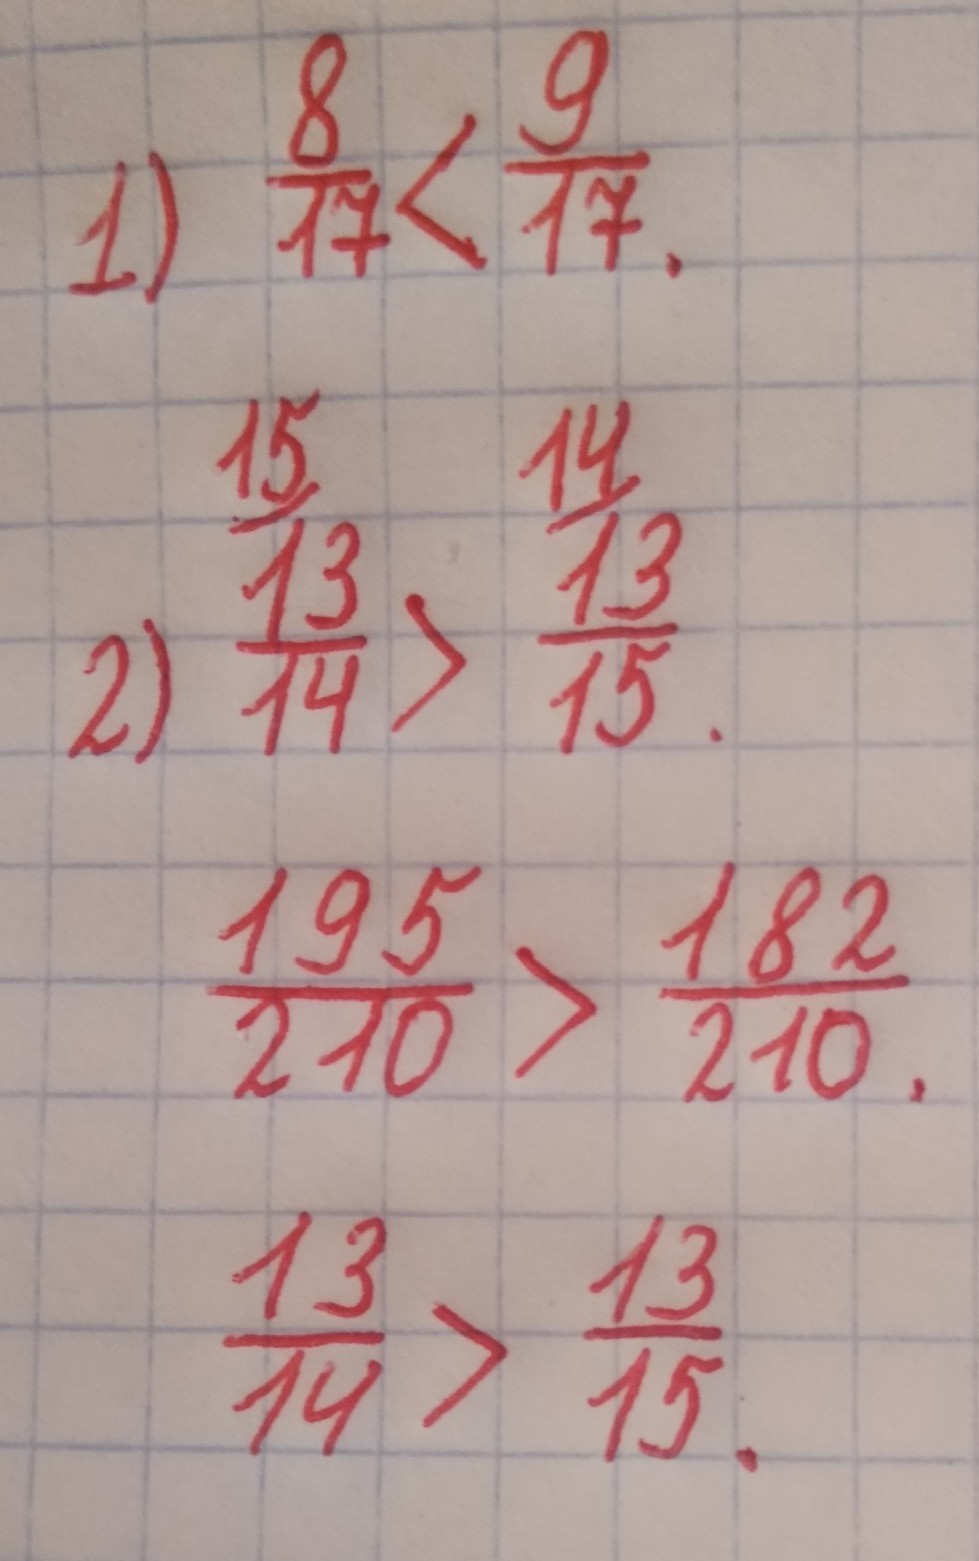 1) 8/17 < 9/17.
2) 15/ 13/14 > 14/ 13/15.
195/210 > 182/210.
13/14 > 13/15.